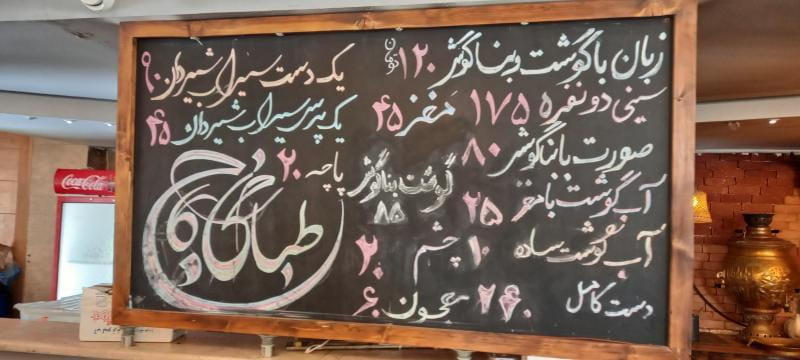 زبان با گوشت و بناگوش ۱۲۰ تومان
سینی دو نفره ۱۷۵
مغز ۴۵
صورت با بناگوش ۸۰
آب گوشت با مغز ۲۵
آب گوشت ساده ۱۰
دست کامل ۲۶۰
گوشت بناگوش ۸۵
چشم ۲۰
معجون ۶۰
یک دست سیراب شیردان ۹۰
یک پرس سیراب شیردان ۴۵
پاچه ۲۰
طباخی
Coca-Cola